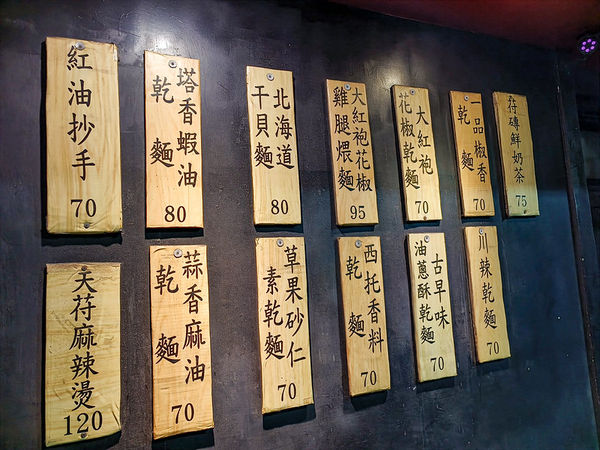 紅油抄手
70
塔香蝦油
乾麵
80
北海道
干貝麵
80
大紅袍花椒
雞腿煨麵
95
大紅袍
花椒乾麵
70
一品椒香
乾麵
70
磚鮮奶茶
75
天麻辣燙
120
蒜香麻油
乾麵
70
草果砂仁
素乾麵
70
西托香料
乾麵
70
古早味
油蔥酥乾麵
70
川辣乾麵
70